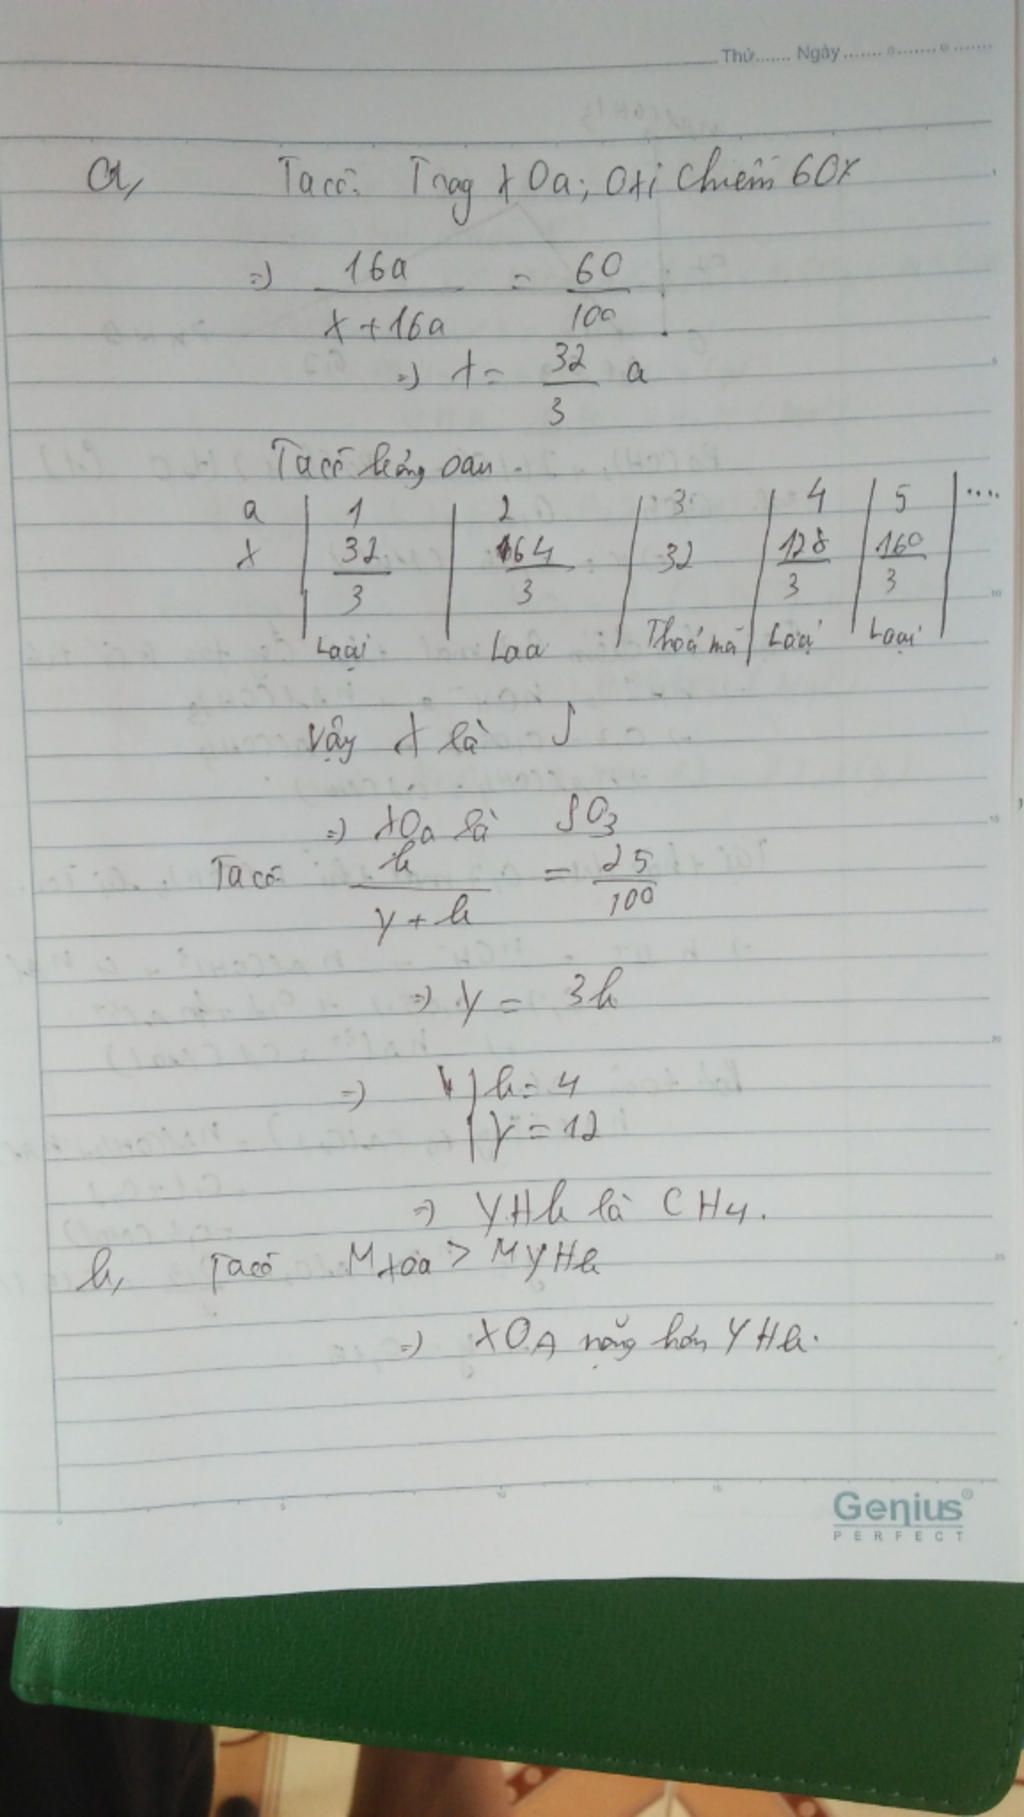 Thứ....... Ngày....... o....... o.......
a, Ta có: Trog XOa; Oxi chiếm 60%
=> 16a / X + 16a = 60 / 100
=> X = 32 / 3 a
Ta có bảng sau.
a | 1 | 2 | 3 | 4 | 5 | ....
X | 32/3 | 64/3 | 32 | 128/3 | 160/3
Loại | Loạ | Thoả mã | Loại | Loại
Vậy X là S
=> XOa là SO3
Ta có b / Y + b = 25 / 100
=> Y = 3b
=> b = 4
Y = 12
=> YHb là CH4.
b, Ta có MXOa > MYHb
=> XOA nặng hơn YHb.
Genius
PERFECT